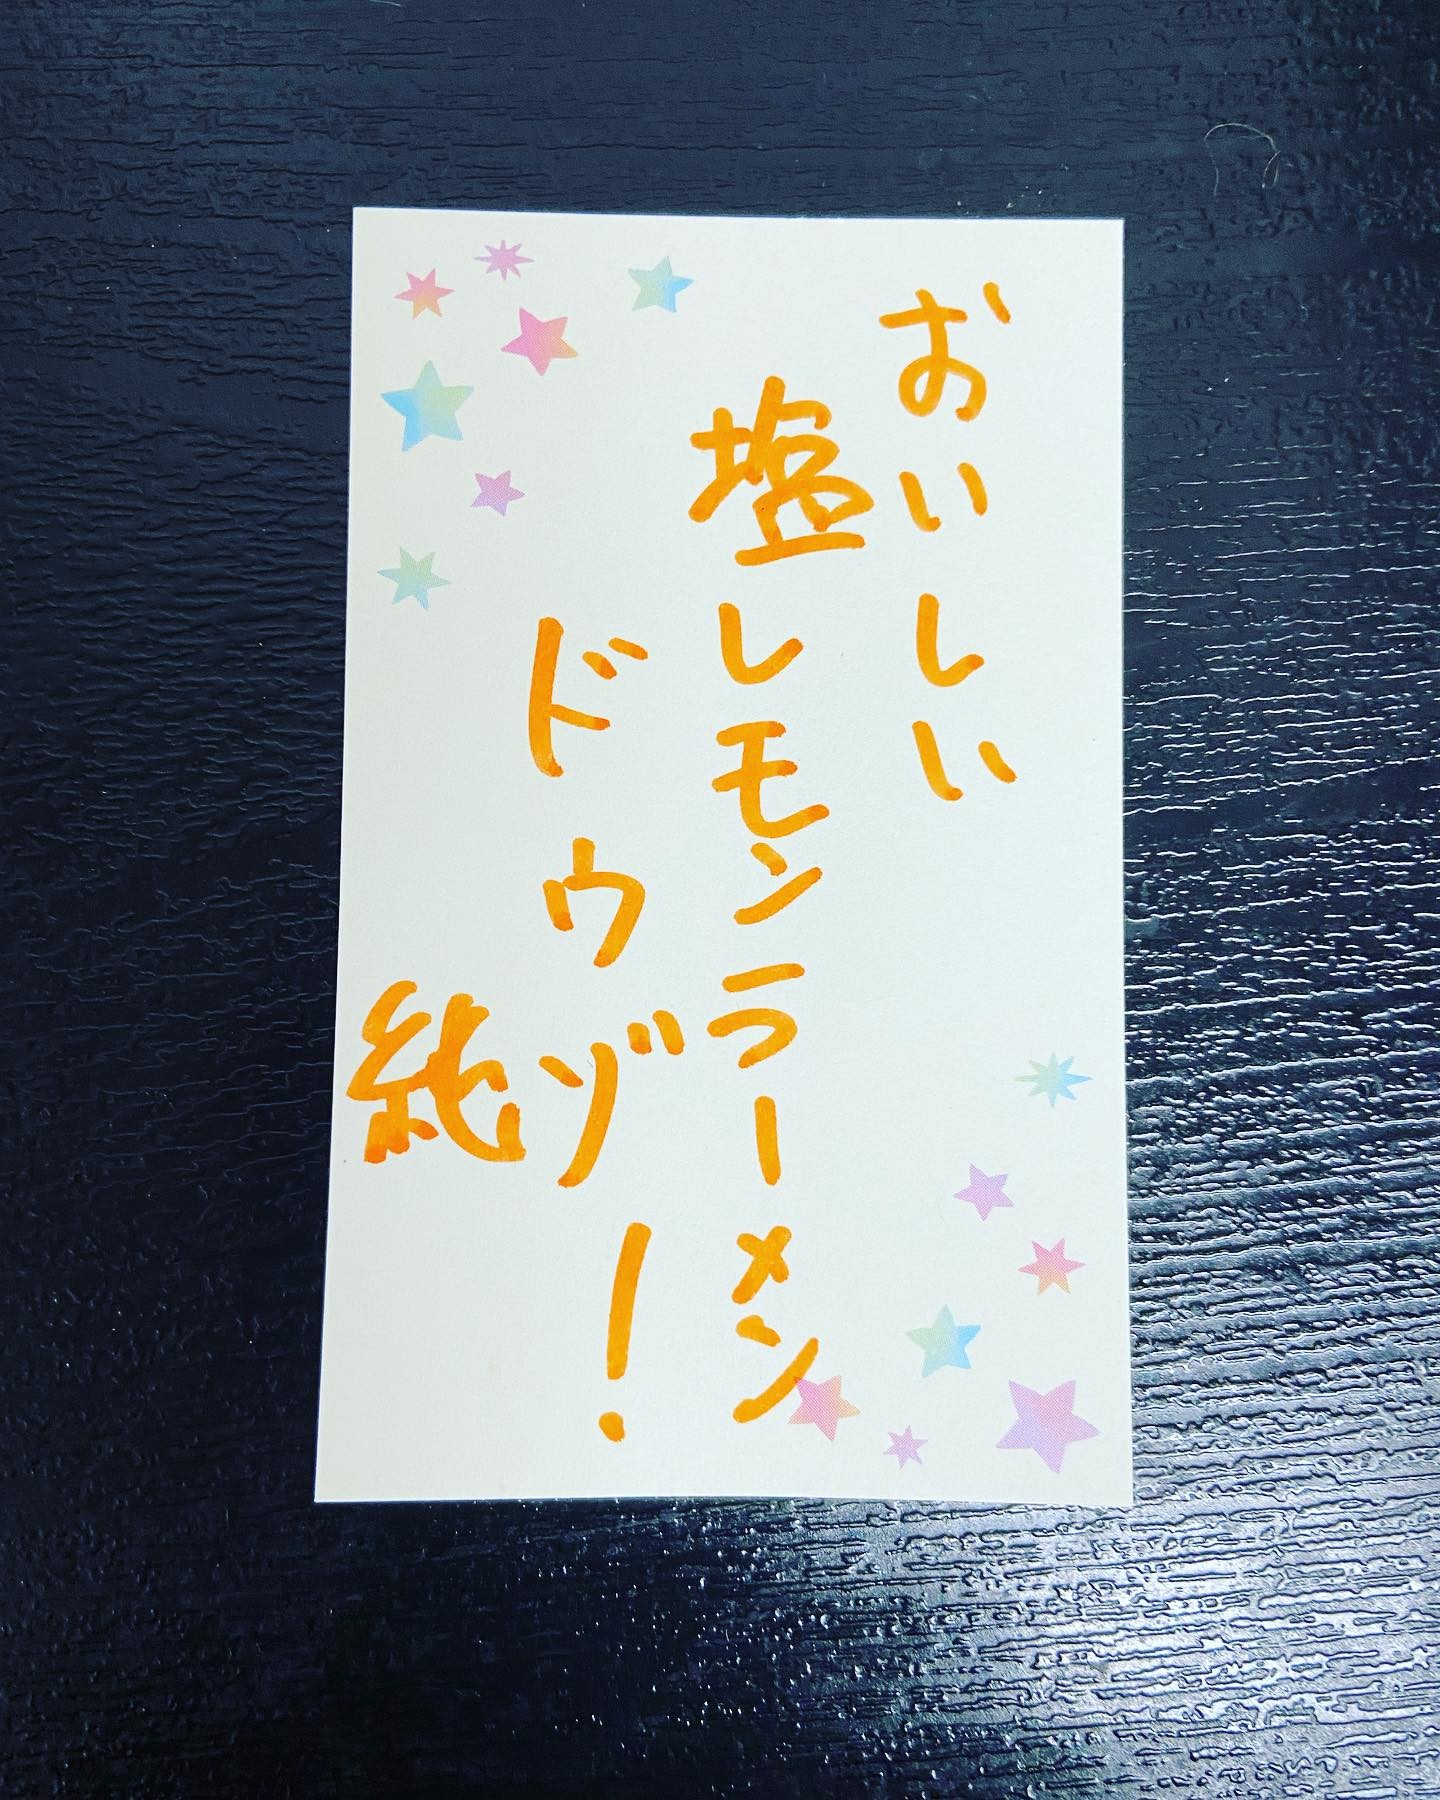 おいしい
塩レモンラーメン
ドウゾ!
純